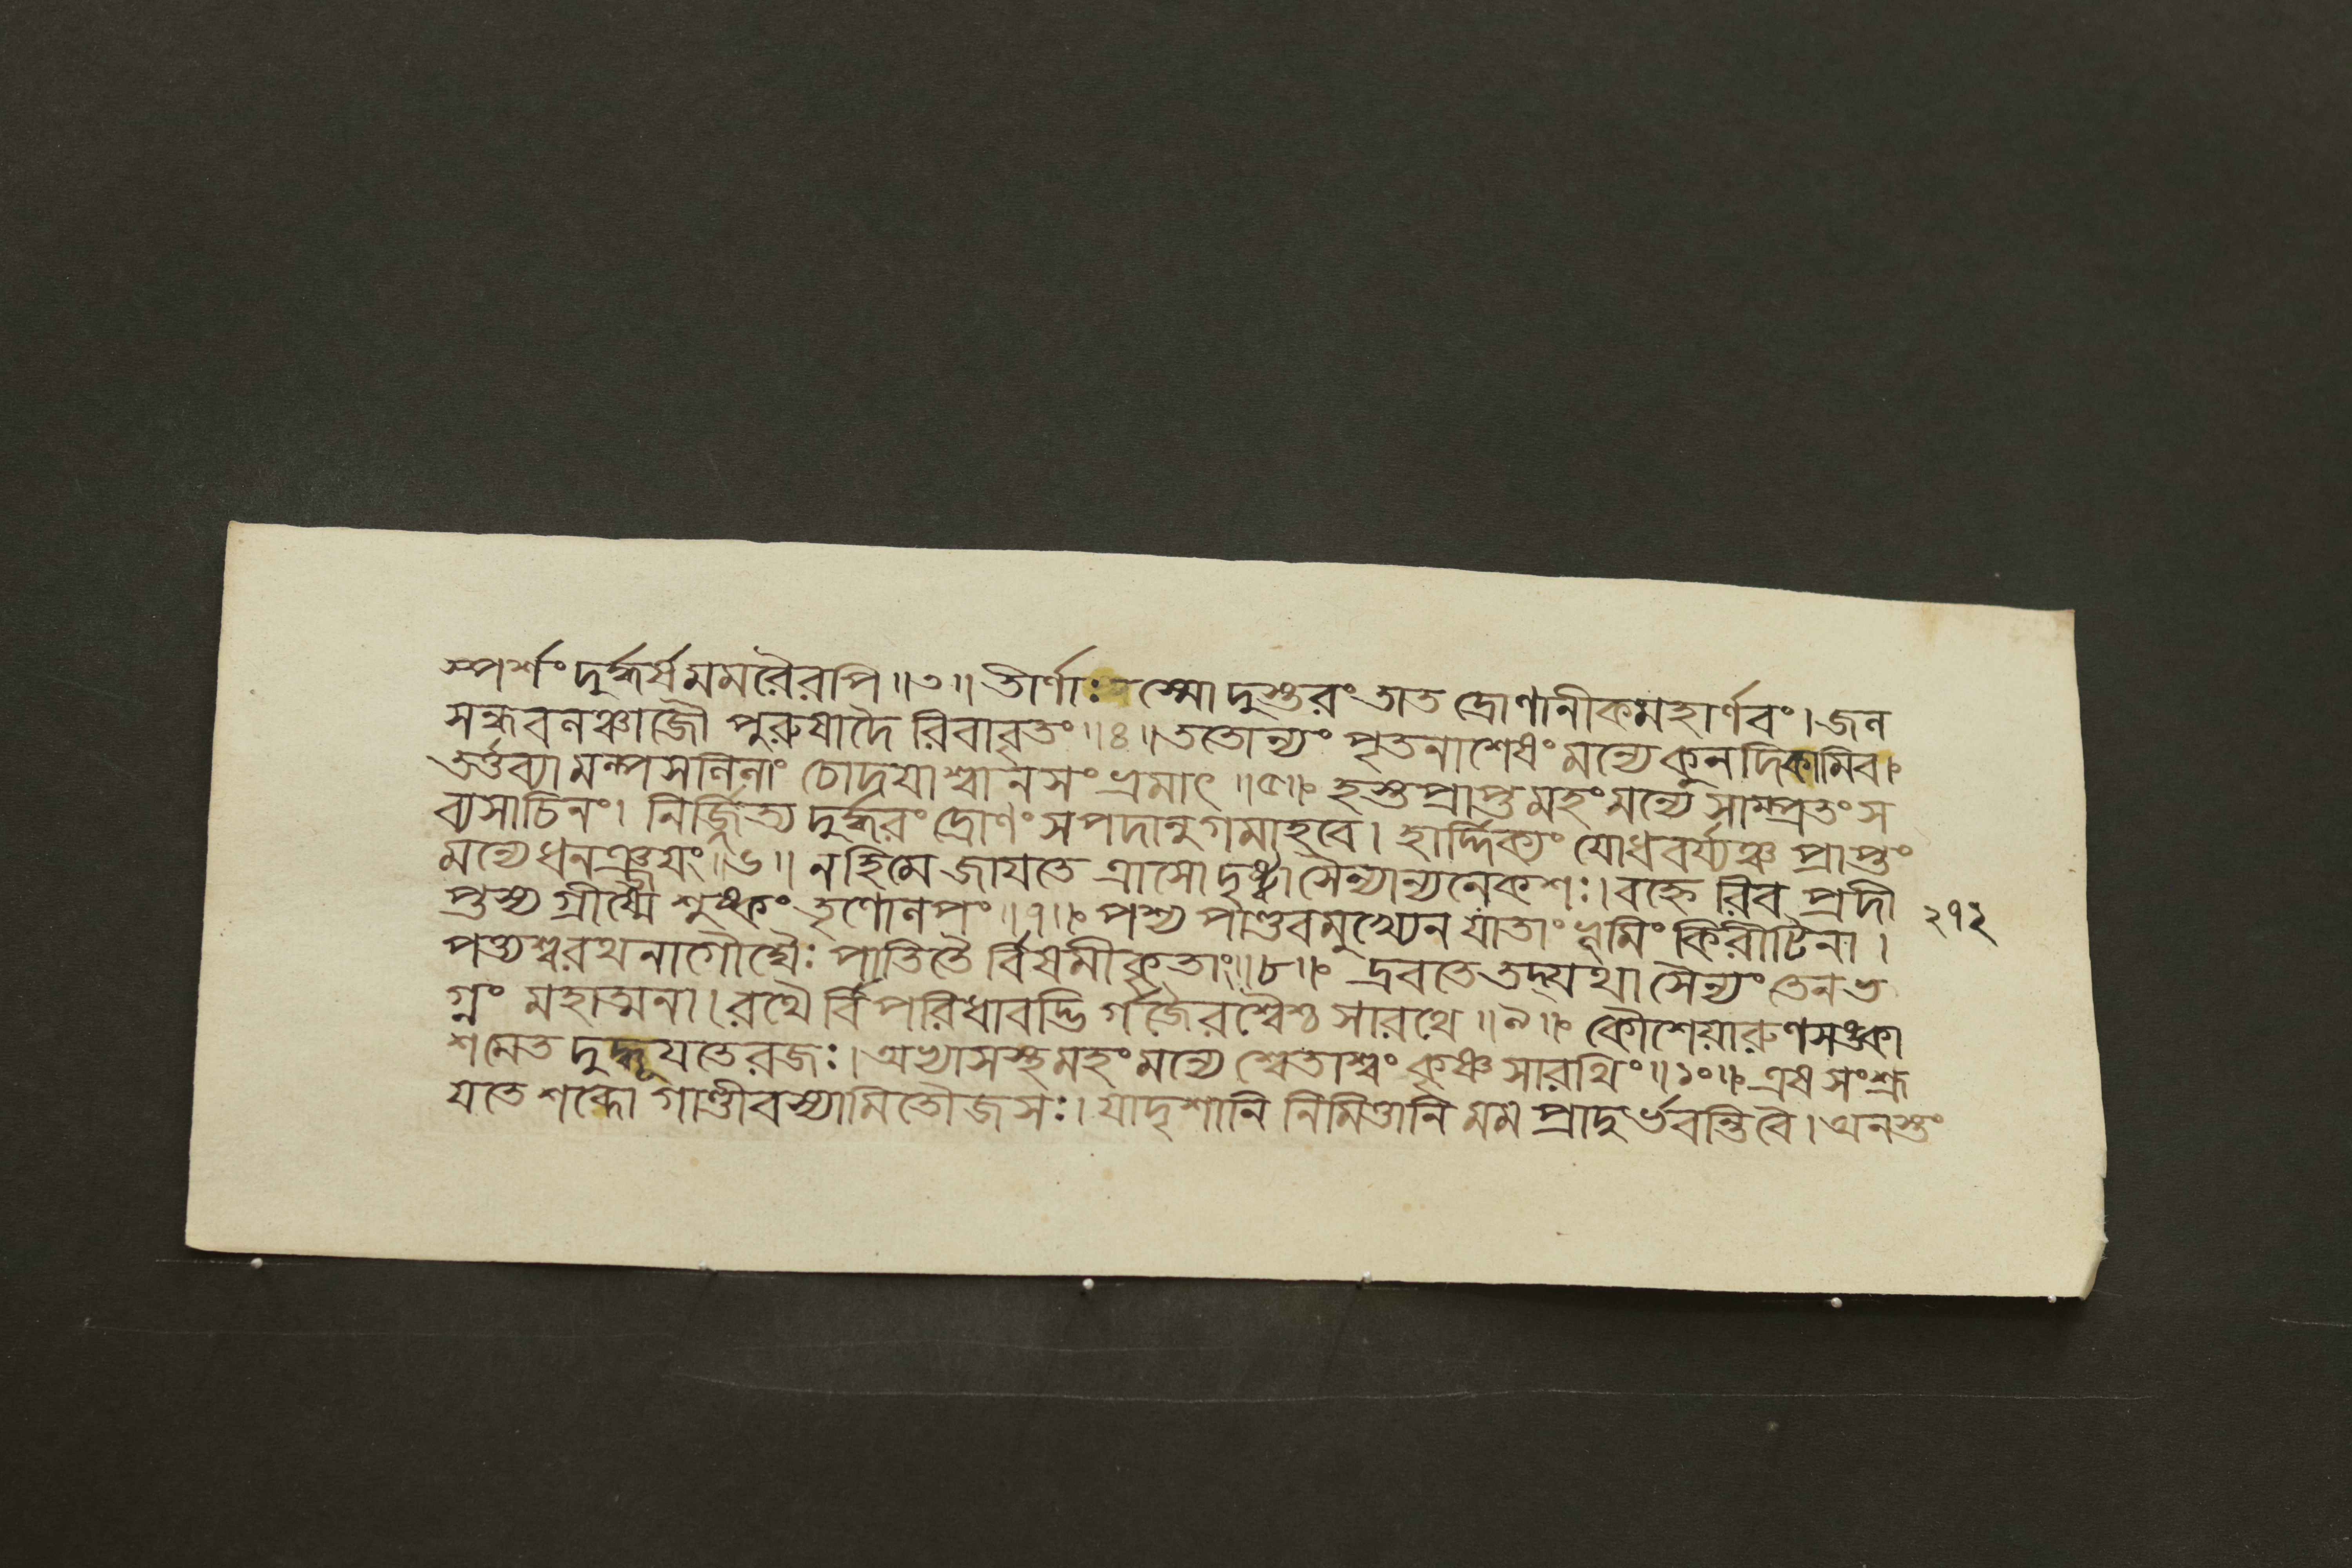 স্পর্শং দুর্দ্ধর্ষমমরৈরপি ॥৩॥ তীর্ণাঃ স্মো দুস্তরং তাত দ্রোণানীকমহার্ণবং। জন
সন্ধবনঞ্চাজৌ পুরুষাদৈ রিবাবৃতং ॥৪॥ ততোন্যং পৃতনাশেষং মন্যে কুনদিকামিব।
তর্ত্তব্যামল্পসলিলাং চোদয়াশ্বানসংভ্রমাৎ ॥৫॥ হস্তপ্রাপ্তমহং মন্যে সাম্প্রতং স
ব্যসাচিনং। নির্জ্জিত্য দুর্দ্ধরং দ্রোণং সপদানুগমাহবে। হার্দ্দিক্যং যোধবর্য্যঞ্চ প্রাপ্তং
মন্যে ধনঞ্জয়ং ॥৬॥ নহি মে জায়তে ত্রাসো দৃষ্ট্বা সৈন্যান্যনেকশঃ। বহ্নে রিব প্রদী
প্তস্য গ্রীষ্মে শুষ্কং তৃণোলপং ॥৭॥ পশ্য পাণ্ডবমুখ্যেন যাতাং ভূমিং কিরীটিনা। ২৭২
পত্ত্যশ্বরথনাগৌঘৈঃ পাতিতৈ র্বিষমীকৃতাং ॥৮॥ দ্রবতে তদ্যথা সৈন্যং তেন ভ
গ্নং মহাত্মনা। রথৈ র্বিপরিধাবদ্ভি র্গজৈরশ্বৈশ্চ সারথে ॥৯॥ কৌশেয়ারুণসঙ্কা
শমেত দুদ্ধূয়তে রজঃ। অভ্যাসস্থমহং মন্যে শ্বেতাশ্বং কৃষ্ণসারথিং ॥১০॥ এষ সংশ্রূ
যতে শব্দো গাণ্ডীবস্যামিতৌজসঃ। যাদৃশানি নিমিত্তানি মম প্রাদুর্ভবন্তি বৈ। অনস্তং